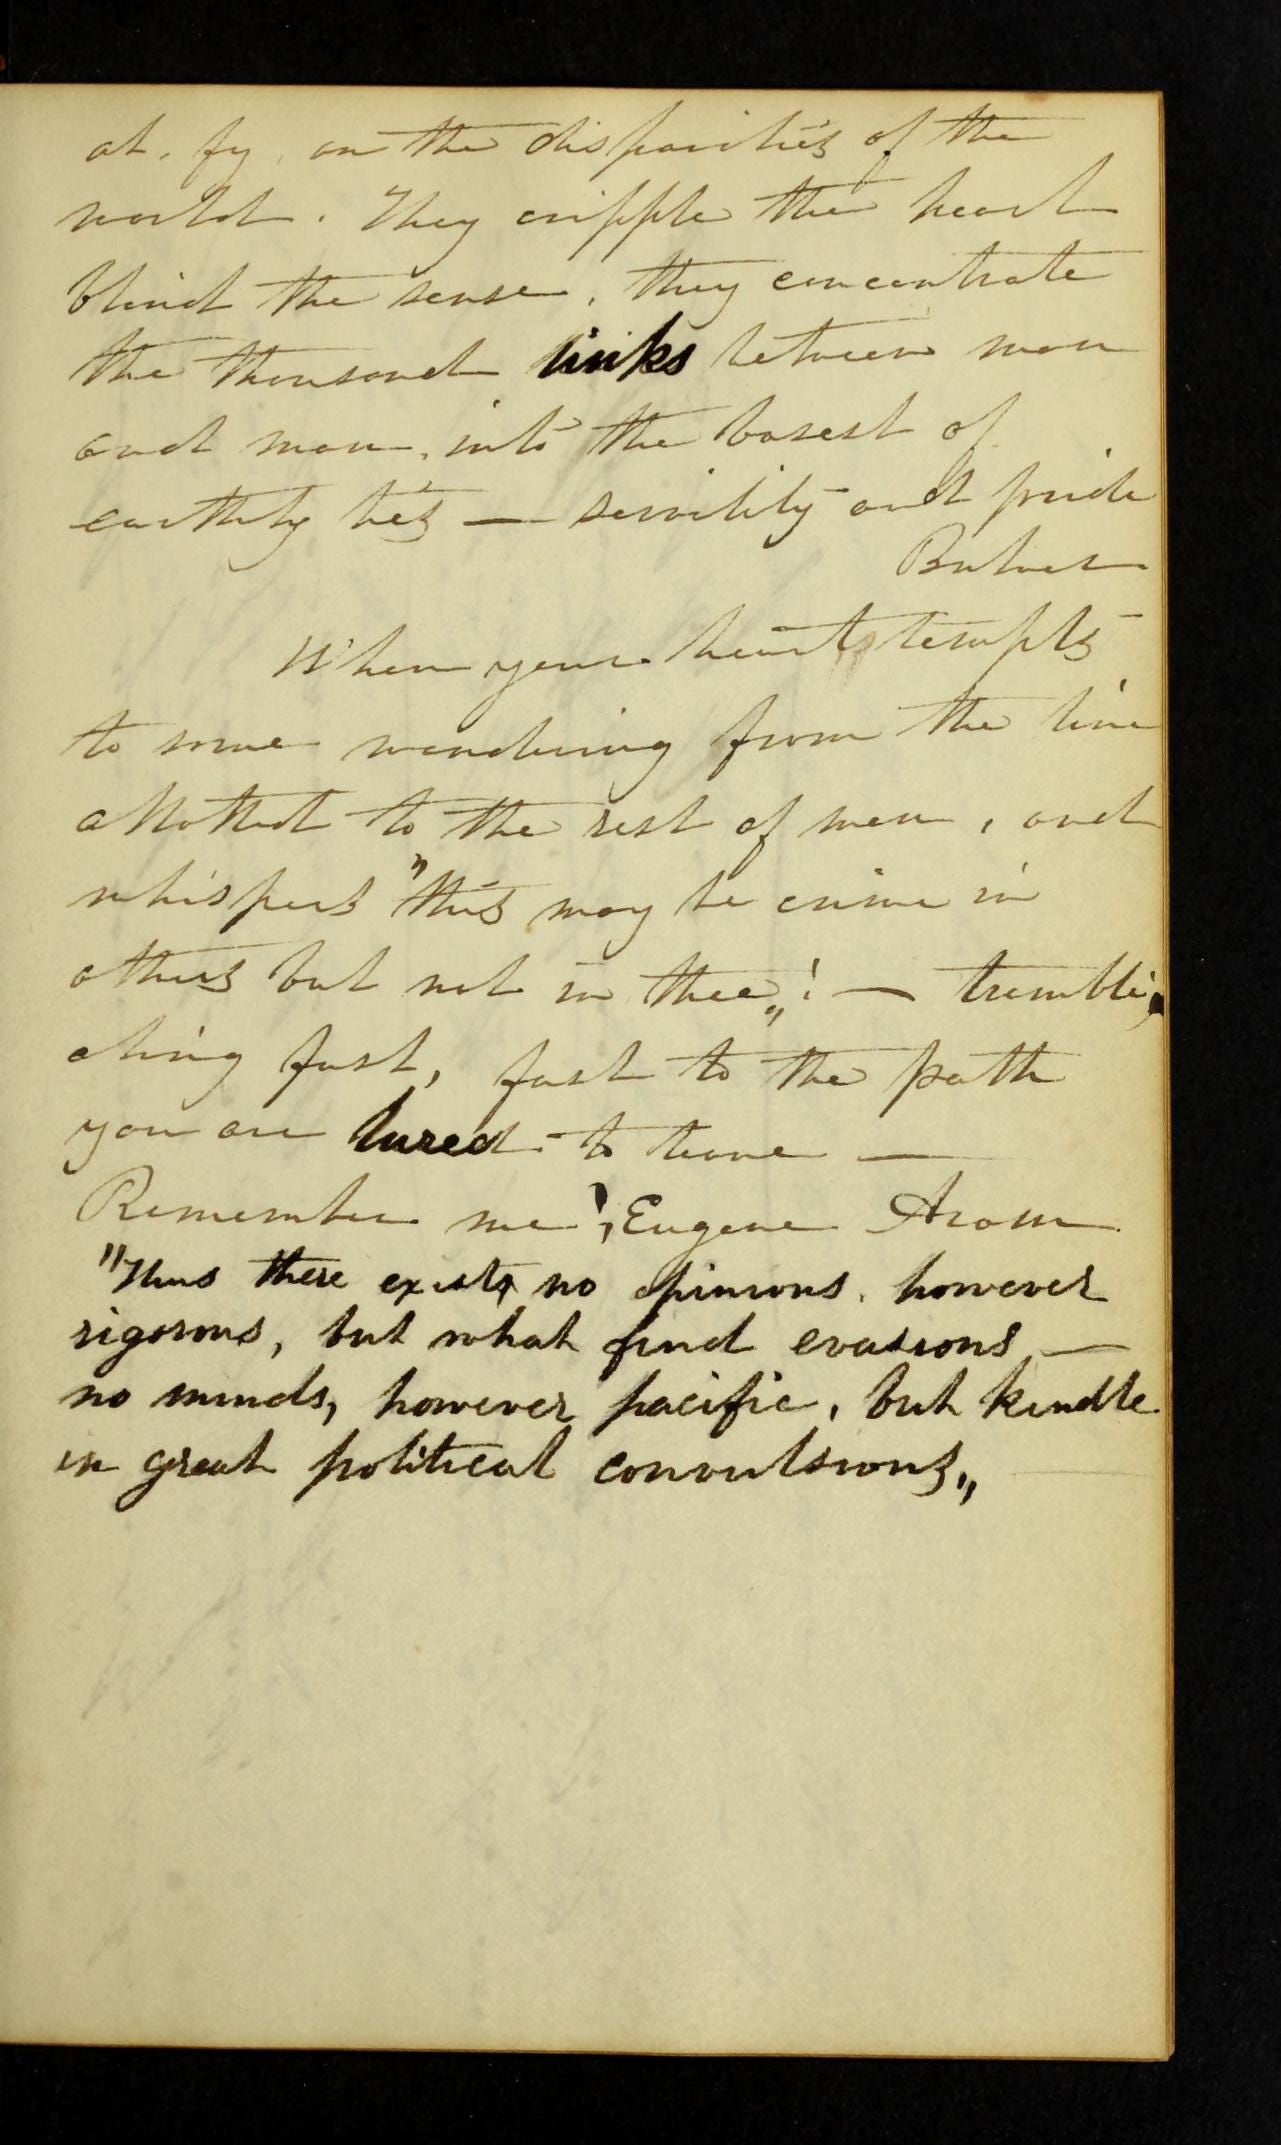 at. fy, on the disparities of the
world. They cripple the heart
blind the sense, they concentrate
the thousand links between man
and man, into the basest of
earthly ties — servility and pride
Bulwer
When your heart tempts
to some wandering from the line
allotted to the rest of men, and
whispers "this may be crime in
others but not in thee"! — tremble,
cling fast, fast to the path
you are lured to leave —
Remember me!, Eugene Aram
"Thus there exists no opinions. however
rigorous, but what find evasions —
no minds, however pacific, but kindle
in great political convulsions"